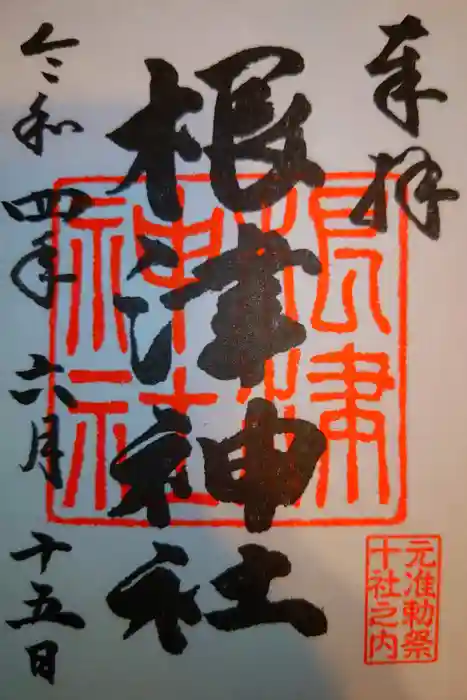 奉拝
元准勅祭
十社之内
根津神社
根津
神社
令和四年六月十五日